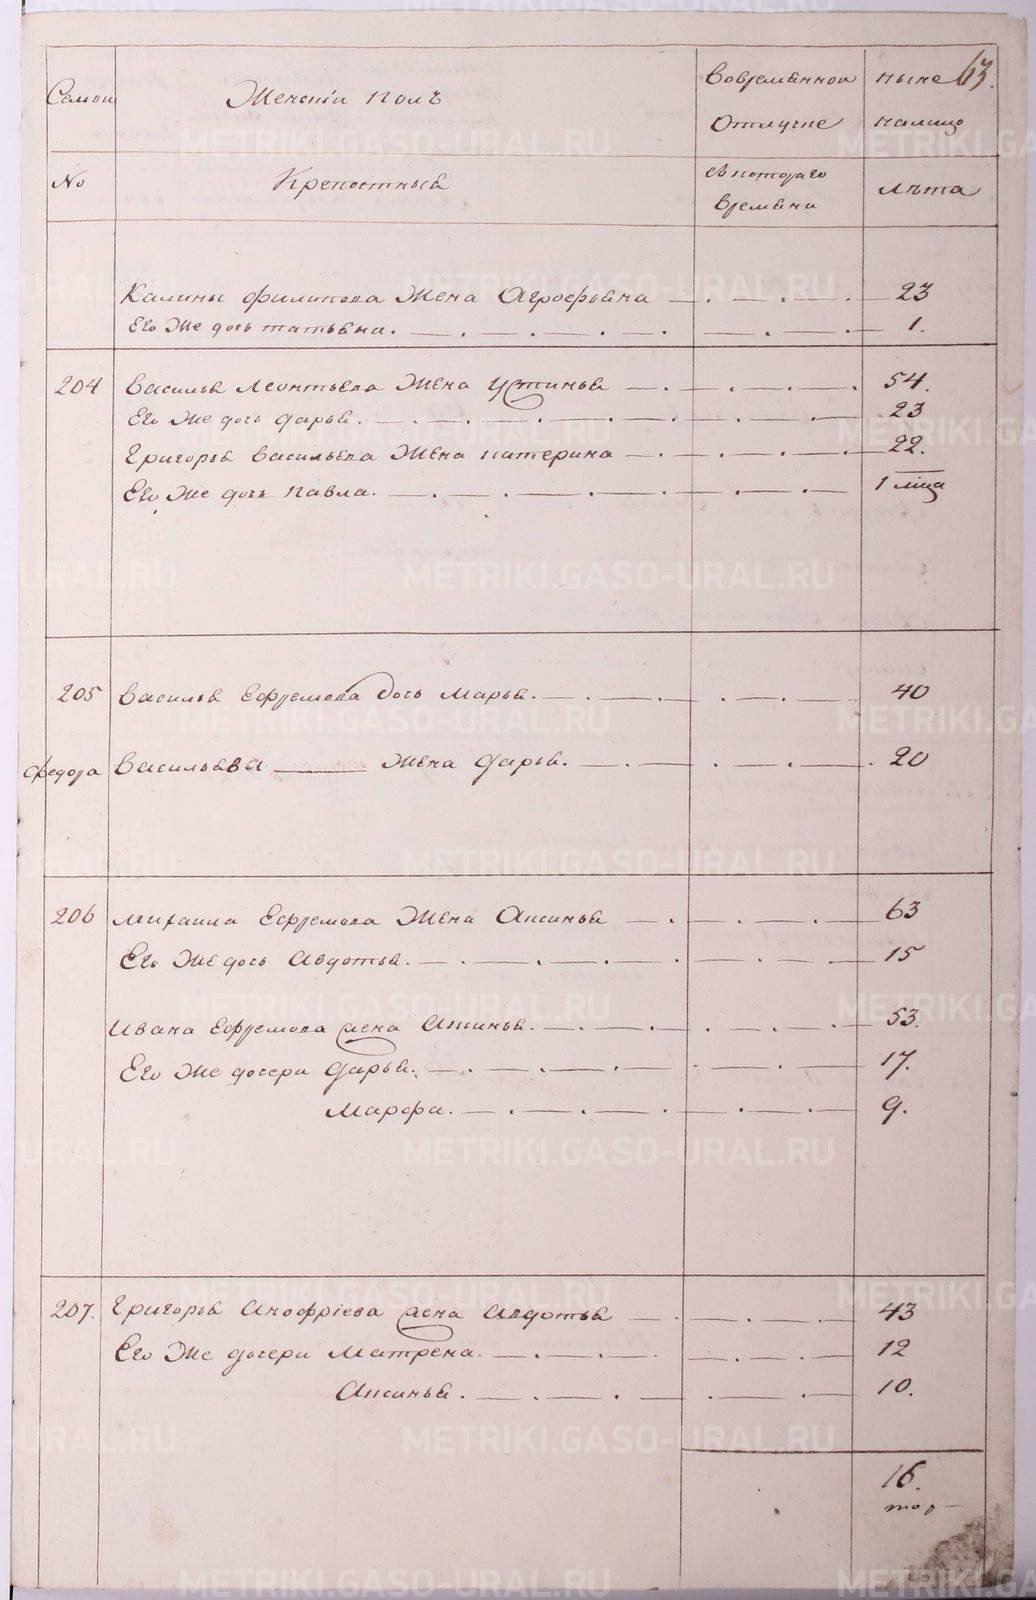 63.
Семьи Женскій полъ Вовременной отлучке ныне налицо
No Крепостныя Скотораго времяни лѣта
Калины филипова Жена Агрофѣвна 23
Его Же дочь татьяна. 1.
204 Василья Леонтьева Жена Устинья 54.
Его Же дочь дарья. 23
Григорья Васильева Жена катерина 22.
Его Же дочь павла. 1 мцa
205 Василья Ефремова дочь Марья. 40
федора Васильева Жена дарья. 20
206 Михаила Ефремова Жена Аксинья 63
Его Же дочь Авдотья. 15
Ивана Ефремова Жена Аксинья. 53.
Его Же дочери дарья. 17.
Марфа. 9.
207. Григорья Анофріева Жена Авдотья 43
Его Же дочери Матрена. 12
Аксинья. 10.
16.
METRIKI.GASO-URAL.RU